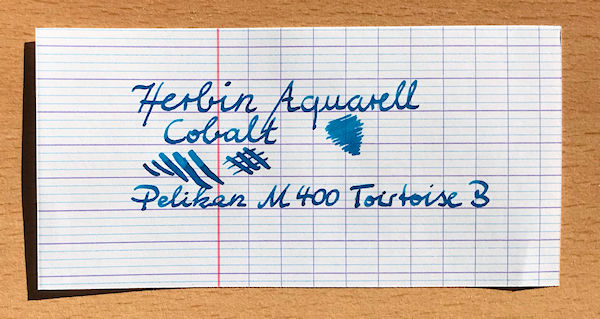 Herbin Aquarell
Cobalt
Pelikan M400 Tortoise B